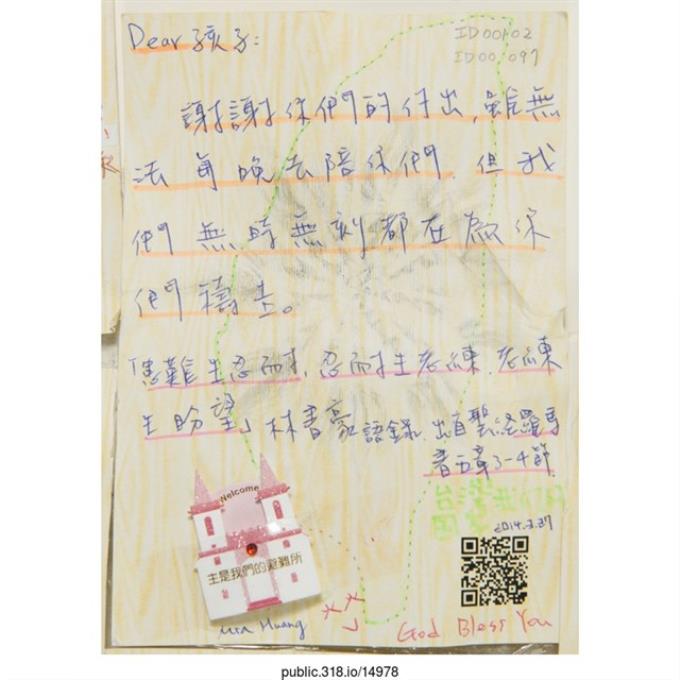 Dear 孩子:
ID00102
ID001097
謝謝你們的付出,雖無
法每晚去陪你們,但我
們無時無刻都在為你
們禱告。
「患難生忍耐,忍耐生老練,老練
生盼望」林書豪語錄,出自聖經羅馬
書五章3-4節
台灣我們的
國家
2014.3.27
Welcome
主是我們的避難所
Huang
God Bless You
public.318.io/14978